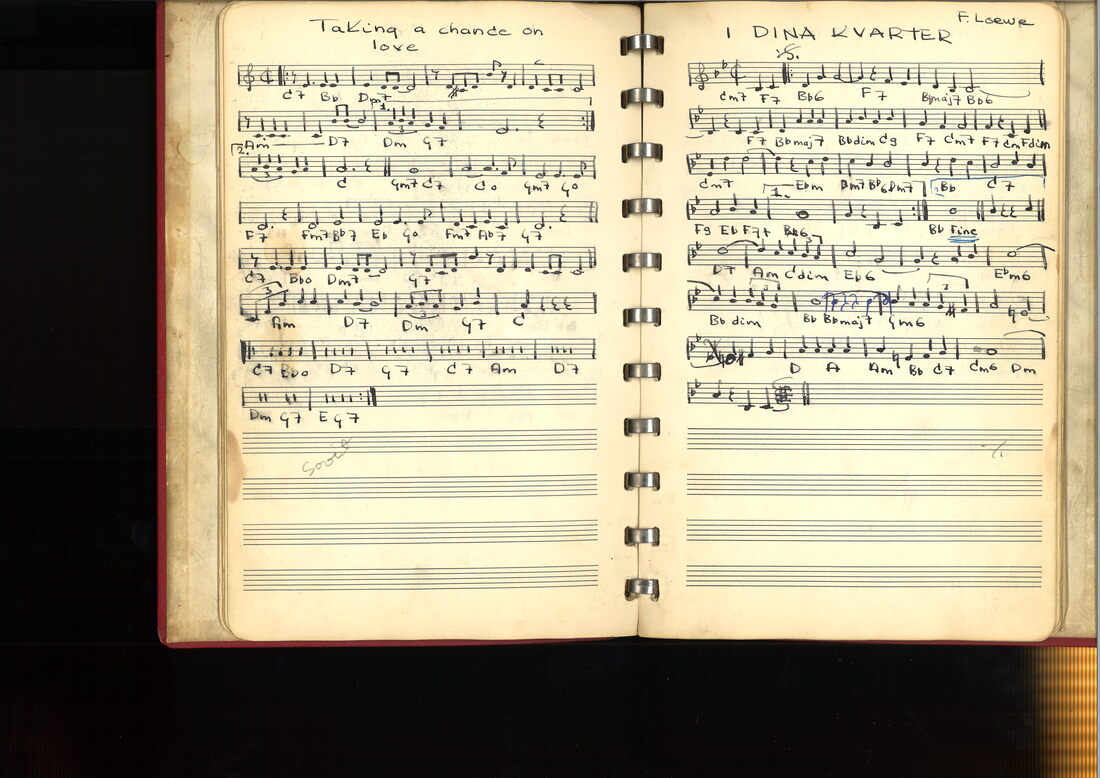 Taking a chance on
love
C7 Bb Dm7
1
Am D7 Dm G7
3
2.
C Gm7 C7 Co Gm7 Go
F7 Fm7 Bb7 Eb Go Fm7 Ab7 G7
C7 Bbo Dm7 G7
3
Am D7 Dm G7 C
3
C7 Bbo D7 G7 C7 Am D7
Dm G7 E G7
F. Loewe
I DINA KVARTER
Cm7 F7 Bb6 F7 Bbmaj7 Bb6
F7 Bbmaj7 Bbdim C9 F7 Cm7 F7 Cm Fdim
Cm7 Ebm Dm7 Bb6 Dm7 Bb C7
1.
F9 Eb F7+ Bb6 Bb Fine
3
D7 Am Cdim Eb6 Ebm6
3 3
Bb dim Bb Bbmaj7 Gm6
D A Am Bb C7 Cm6 Dm